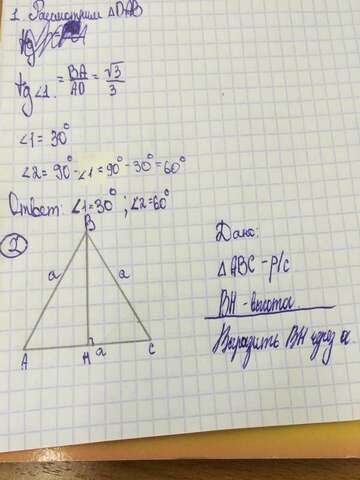 1. Рассмотрим △DAB
tg∠1 = BA/AD = √3/3
∠1 = 30°
∠2 = 90° - ∠1 = 90° - 30° = 60°
Ответ: ∠1 = 30°; ∠2 = 60°
2
B
a
a
A
H
a
C
Дано:
△ABC - р/с
BH - высота
Выразить BH через a.